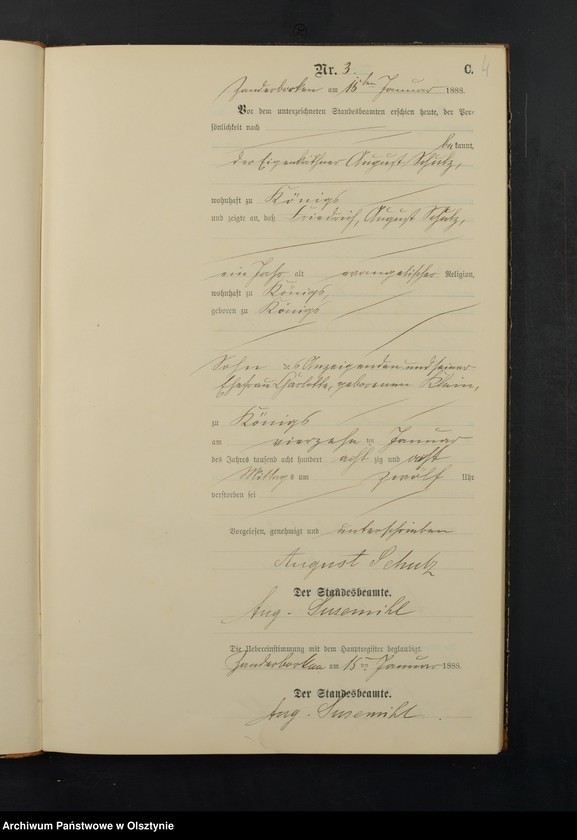 Nr. 3. C. 4
Zanderborken am 15ten Januar 1888.
Vor dem unterzeichneten Standesbeamten erschien heute, der Per-
sönlichkeit nach
bekannt,
der Eigenkäthner August Schulz,
wohnhaft zu Königs
und zeigte an, daß Friedrich, August Schulz,
ein Jahr alt evangelischer Religion,
wohnhaft zu Königs,
geboren zu Königs
Sohn des Anzeigenden und seiner
Ehefrau Charlotte, geborenen Klein,
zu Königs
am vierzehn ten Januar
des Jahres tausend acht hundert acht zig und acht
Mittags um zwölf Uhr
verstorben sei
Vorgelesen, genehmigt und unterschrieben
August Schulz
Der Standesbeamte.
Aug. Susemihl
Die Uebereinstimmung mit dem Hauptregister beglaubigt.
Zanderborken am 15ten Januar 1888.
Der Standesbeamte.
Aug. Susemihl
Archiwum Państwowe w Olsztynie